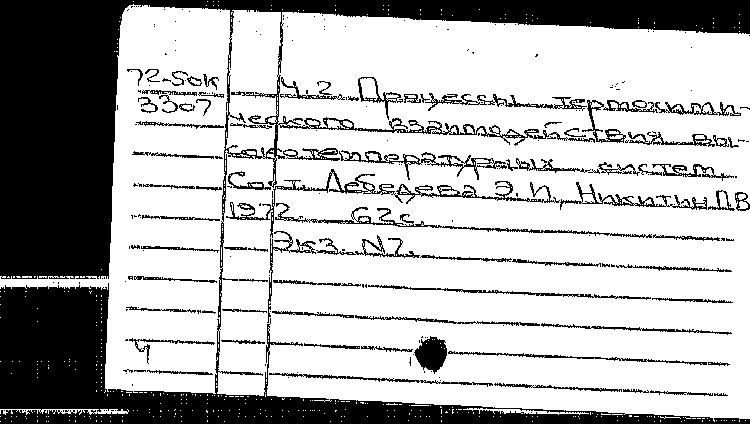 72-5ок Ч.2. Процессы термохими-
3307 ческого взаимодействия вы-
сокотемпературных систем.
Сост. Лебедева Э.И., Никитин П.В
1972. 62с.
Экз. N7.
Ч